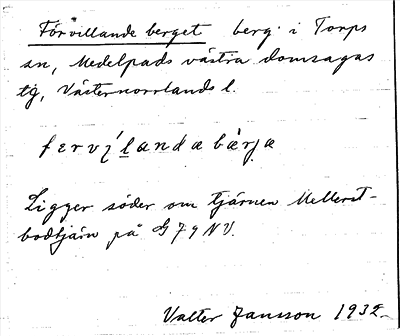 Förvillande berget berg i Torps
sn, Medelpads västra domsagas
tg, Västernorrlands l.
Ligger söder om tjärnen Mellerst-
bodtjärn på G 79 NV.
Valter Jansson 1932